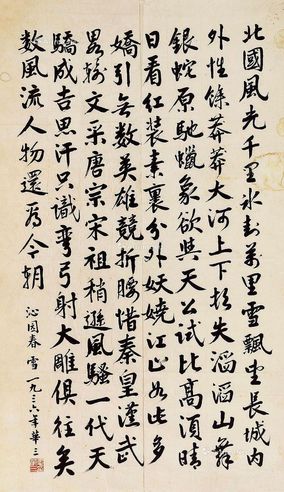 北國風光千里冰封萬里雪飄望長城內
外惟餘莽莽大河上下頓失滔滔山舞
銀蛇原馳蠟象欲與天公試比高須晴
日看紅裝素裹分外妖嬈江山如此多
嬌引無数英雄競折腰惜秦皇漢武
畧輸文采唐宗宋祖稍遜風騷一代天
驕成吉思汗只識彎弓射大雕俱往矣
数風流人物還看今朝
沁園春 雪 一九三六年華三